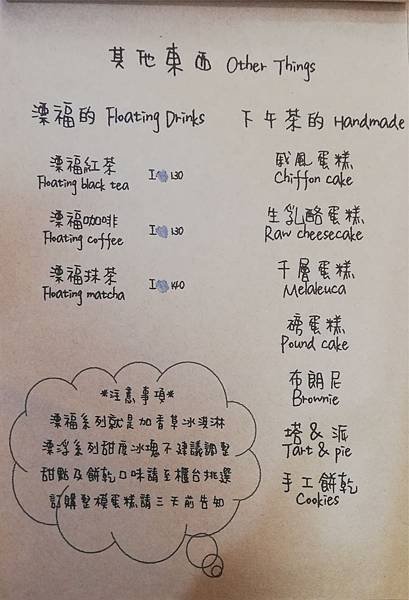 其他東西 Other Things
漂福的 Floating Drinks
漂福紅茶 I 130
Floating black tea
漂福咖啡 I 130
Floating coffee
漂福抹茶 I 140
Floating matcha
*注意事項*
漂福系列就是加香草冰淇淋
漂浮系列甜度冰塊不建議調整
甜點及餅乾口味請至櫃台挑選
訂購整模蛋糕請三天前告知
下午茶的 Handmade
戚風蛋糕
Chiffon cake
生乳酪蛋糕
Raw cheesecake
千層蛋糕
Melaleuca
磅蛋糕
Pound cake
布朗尼
Brownie
塔&派
Tart & pie
手工餅乾
Cookies